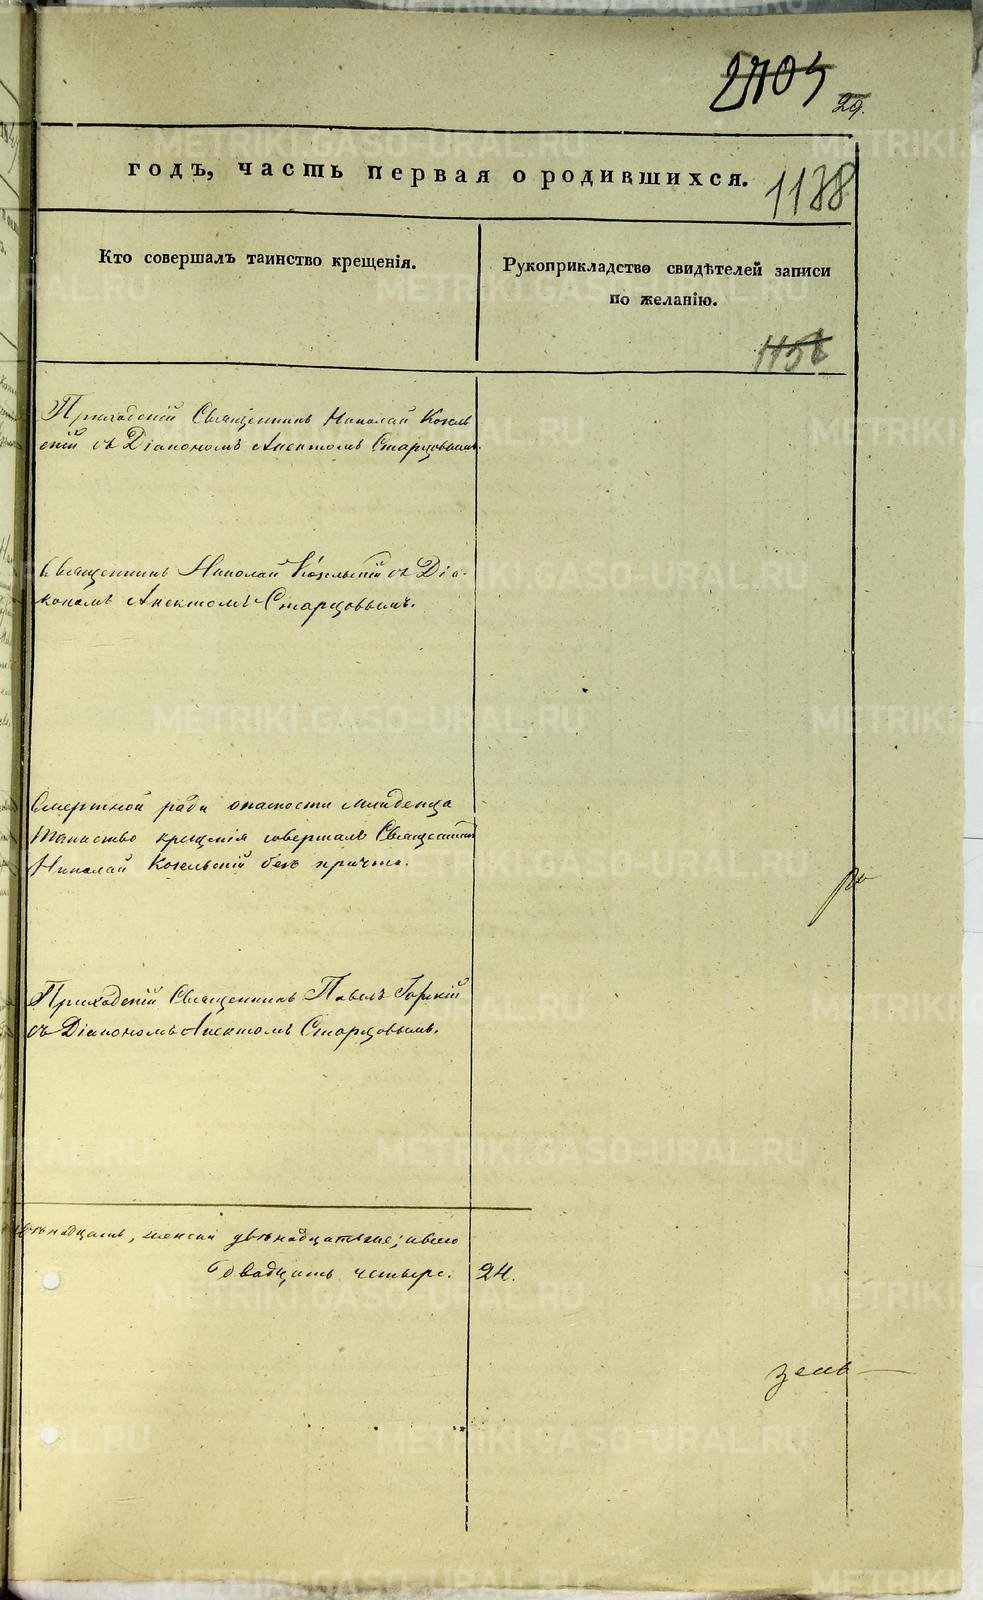 29.
годъ, часть первая о родившихся.
1138
Кто совершалъ таинство крещенія.
Рукоприкладство свидѣтелей записи
по желанію.
Приходскій Священникъ Николай Козель
скій съ Діакономъ Анектомъ Старцовымъ.
Священникъ Николай Козельскій съ Діа-
кономъ Анектомъ Старцовымъ.
Смертной ради опасности младенца
таинство крещенія совершалъ Священникъ
Николай Козельскій безъ причта.
Приходскій Священникъ Павелъ Горскій
съ Діакономъ Анектомъ Старцовымъ.
женска двѣнадцать же; а всего
двадцать четыре. 24.
METRIKI.GASO-URAL.RU